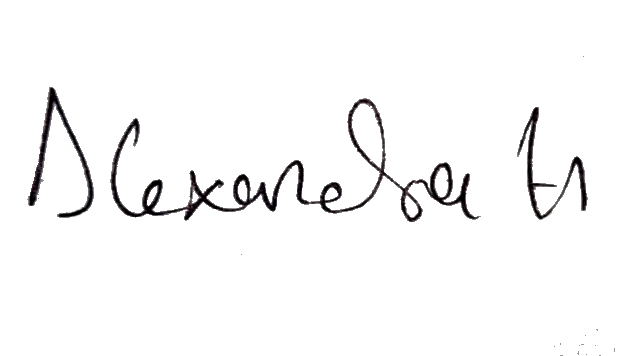 Alexandra H